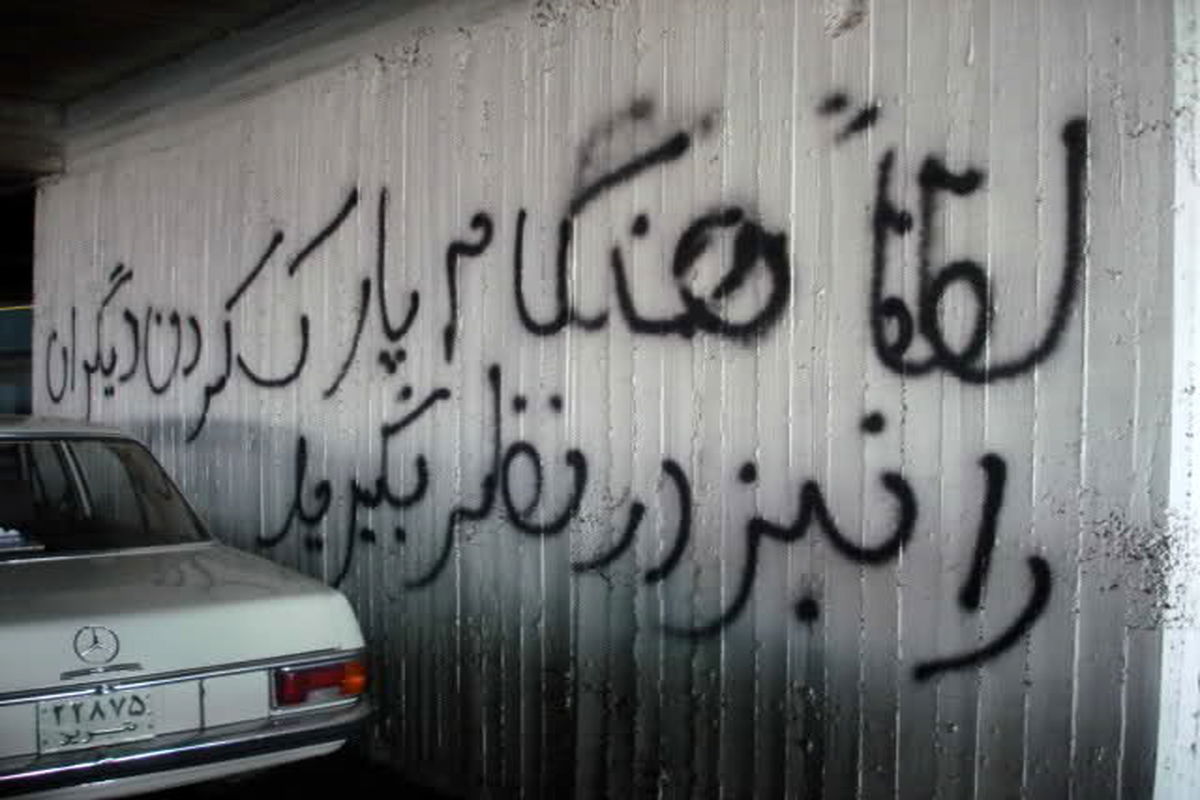 لطفاً هنگام پارک کردن دیگران
را نیز در نظر بگیرید
۲۲۸۷۵
تبریز